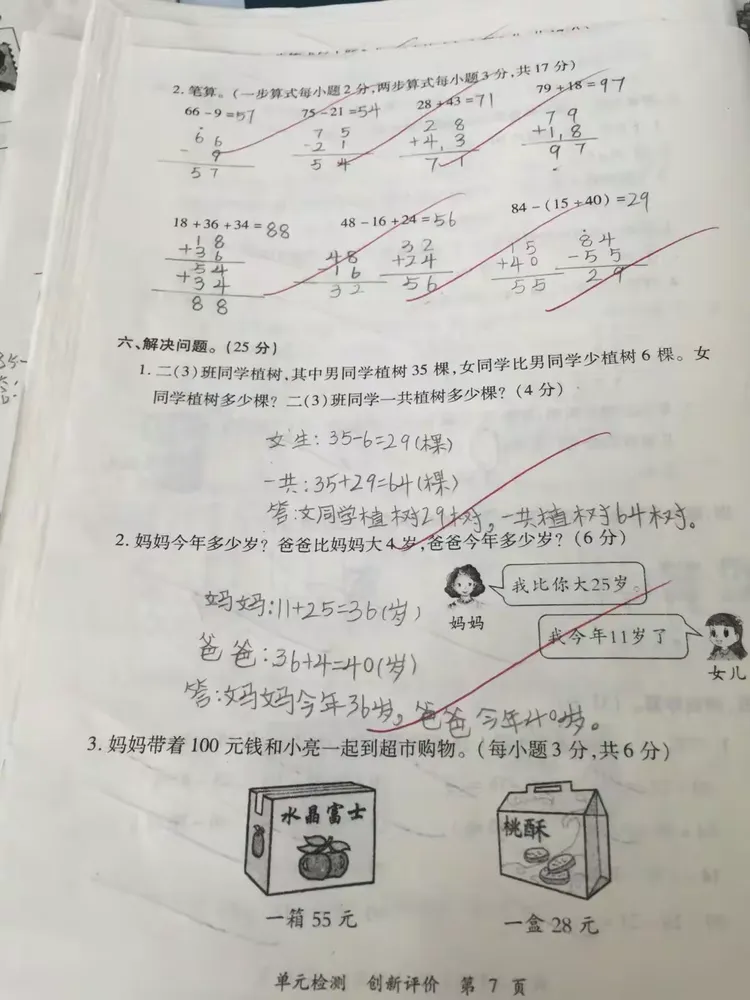 2.笔算。(一步算式每小题2分,两步算式每小题3分,共17分)
66-9=57 75-21=54 28+43=71 79+18=97
6 6
- 9
5 7
7 5
-2 1
5 4
2 8
+4,3
7 1
7 9
+1,8
9 7
18+36+34=88 48-16+24=56 84-(15+40)=29
1 8
+3 6
5 4
+3 4
8 8
4 8
-1 6
3 2
3 2
+2 4
5 6
1 5
+4 0
5 5
8 4
-5 5
2 9
六、解决问题。(25分)
1.二(3)班同学植树,其中男同学植树35棵,女同学比男同学少植树6棵。女
同学植树多少棵?二(3)班同学一共植树多少棵?(4分)
女生:35-6=29(棵)
一共:35+29=64(棵)
答:女同学植树29树,一共植树64树。
2.妈妈今年多少岁?爸爸比妈妈大4岁,爸爸今年多少岁?(6分)
我比你大25岁。
妈妈
妈妈:11+25=36(岁)
我今年11岁了
女儿
爸爸:36+4=40(岁)
答:妈妈今年36岁,爸爸今年40岁。
3.妈妈带着100元钱和小亮一起到超市购物。(每小题3分,共6分)
水晶富士
桃酥
一箱55元 一盒28元
单元检测 创新评价 第7页